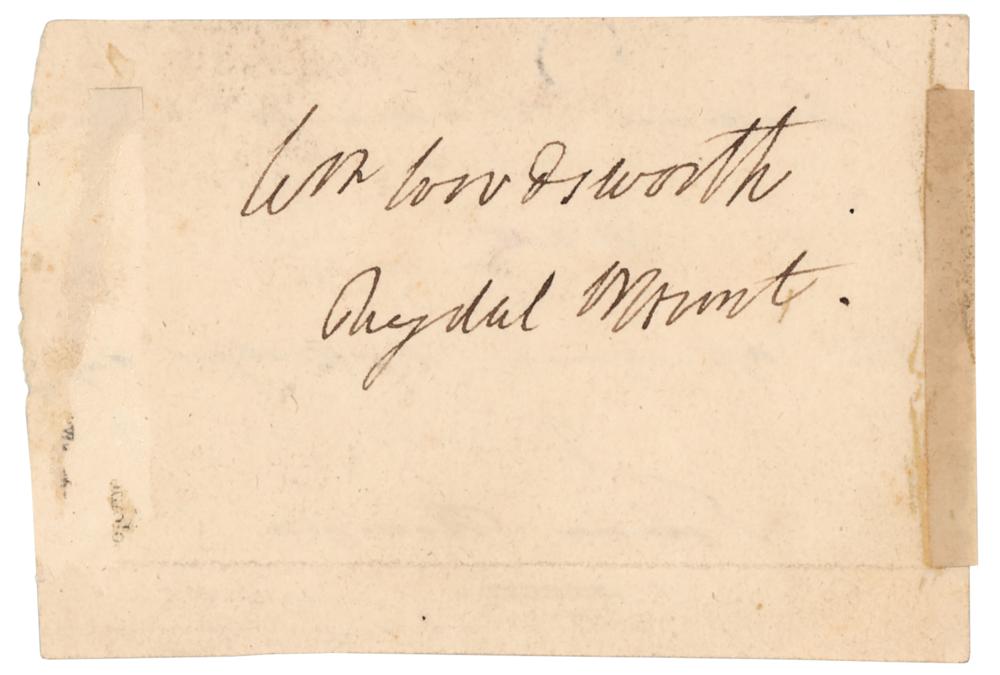 Wm Wordsworth
Rydal Mount.